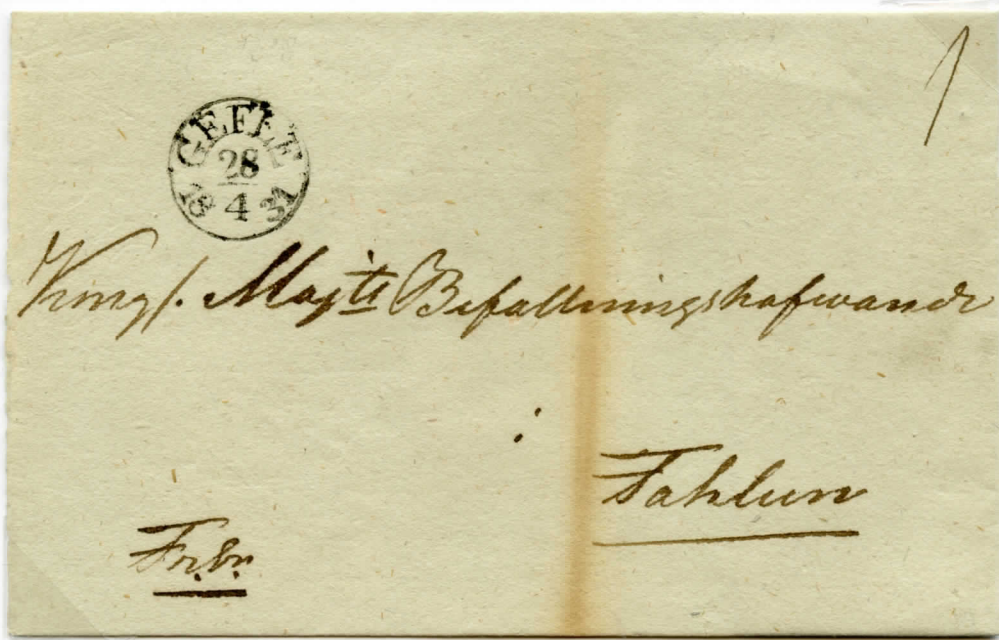 1
GEFLE
28
4
18 31
Kongl. Majts Befallningshafwande
i
Fahlun
Fr.br.